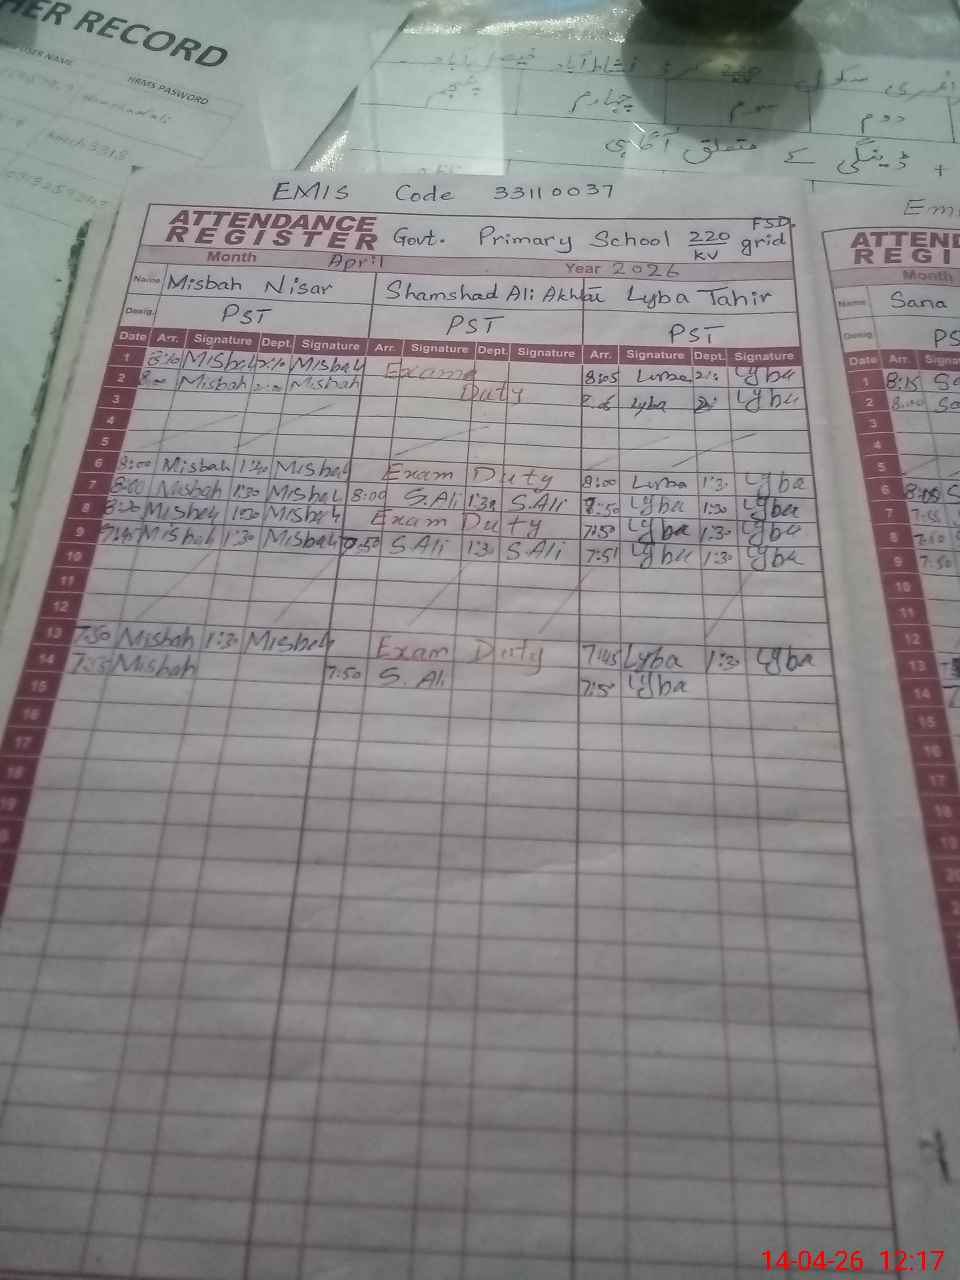 HER RECORD
USER NAME
HRMS PASWORD
چہارم
سوم
دوم
ڈینگی کے متعلق آگاہی
EMIS Code 33110037
ATTENDANCE REGISTER Govt. Primary School 220 KV grid FSD.
Month April Year 2026
Name Misbah Nisar Shamshad Ali Akhtar Lyba Tahir
Desig. PST PST PST
Date Arr. Signature Dept. Signature Arr. Signature Dept. Signature Arr. Signature Dept. Signature
1 8:10 Misbah Misbah Exam 8:05 Lyba Lyba
2 8:00 Misbah 2:00 Misbah Duty Lyba Lyba
3
4
5
6 8:00 Misbah 1:30 Misbah Exam Duty 8:00 Lyba 1:30 Lyba
7 8:00 Misbah 1:30 Misbah 8:00 S.Ali 1:30 S.Ali 7:50 Lyba 1:30 Lyba
8 8:20 Misbah 1:30 Misbah Exam Duty 7:50 Lyba 1:30 Lyba
9 7:45 Misbah 1:30 Misbah 7:50 S.Ali 1:30 S.Ali 7:51 Lyba 1:30 Lyba
10
11
12
13 7:50 Misbah 1:30 Misbah Exam Duty 7:45 Lyba 1:30 Lyba
14 7:35 Misbah 7:50 S.Ali Lyba
15
16
17
18
19
ATTEND
REGI
Month
Name Sana
Desig. PS
Date Arr. Signa
1 8:15 Sa
2 8:00 Sa
3
4
5
6 8:05 S
7 7:55
8 7:50
9 7:50
10
11
12
13
14
15
16
17
18
19
20
14-04-26 12:17